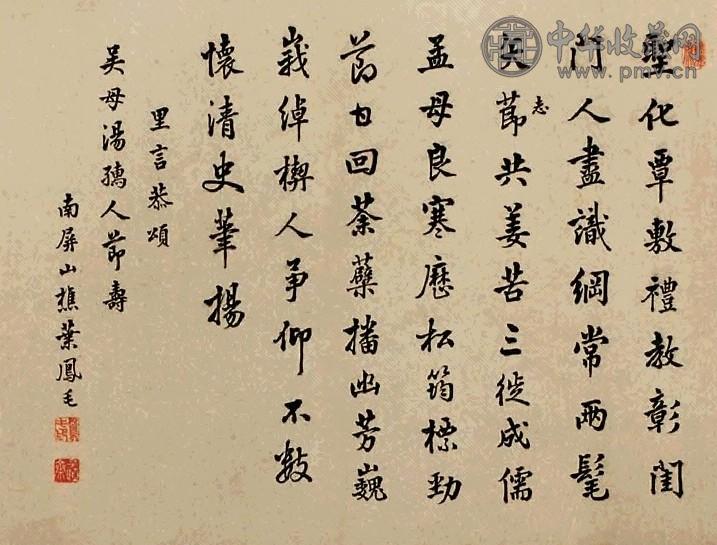 中华收藏网
www.pmv.cn
聖化覃敷禮教彰閨
門人盡識綱常兩髦
矢節共姜苦三徙成儒
志
孟母良寒歷松筠標勁
節甘回荼蘗播幽芳巍
峩綽楔人爭仰不數
懷清史筆揚
里言恭頌
吳母湯孺人節壽
南屏山樵葉鳳毛